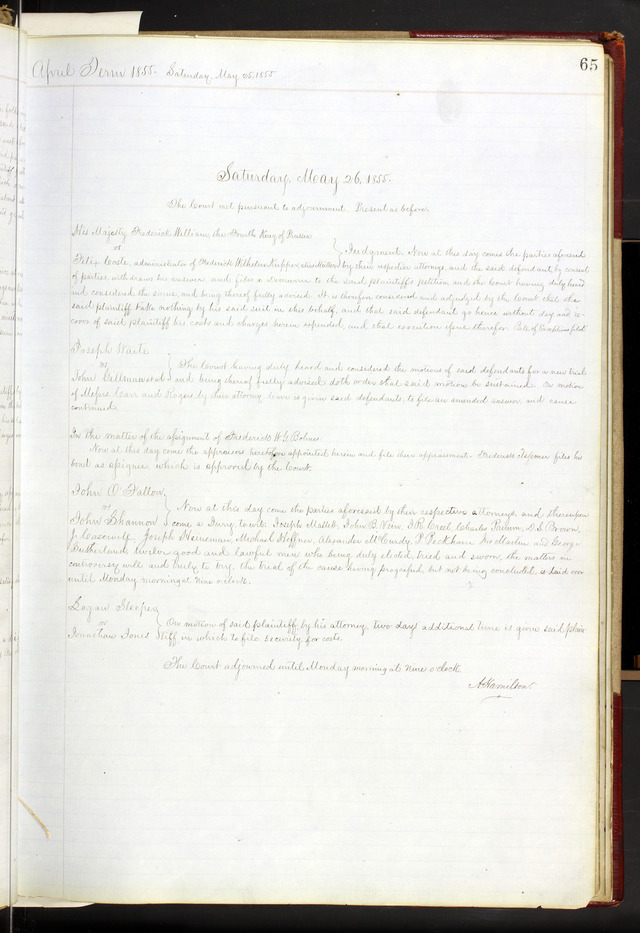 65
April Term 1855. Saturday, May 26, 1855
Saturday, May 26, 1855.
The Court met pursuant to adjournment. Present as before.
His Majesty Frederick William, the Fourth King of Prussia
vs } Judgment. Now at this day comes the parties aforesaid
Felix Coste, administrator of Frederick Wilhelm Kupper, alias by their respective attorneys and the said defendant by consent
of parties, withdraws his answer and files a Demurrer to the said plaintiff's petition and the Court having duly heard
and considered the same, and being thereof fully advised. It is therefore considered and adjudged by the Court that the
said plaintiff take nothing by his said suit in this behalf, and that said defendant go hence without day and re-
cover of said plaintiff his costs and charges herein expended, and that execution issue therefor. Bill of Exceptions filed
Joseph Waite
vs } The Court having duly heard and considered the motions of said defendants for a new trial
John and being thereof fully advised doth order that said motion be sustained. On motion
of Messrs Carr and by their attorney leave is given said defendants to file an amended answer, and cause
continued.
In the matter of the assignment of Frederick W. G.
Now at this day come the appraisers heretofore appointed herein and file their appraisement. Frederick files his
bond as assignee which is approved by the Court.
John O'Fallon
vs } Now at this day come the parties aforesaid by their respective attorneys, and thereupon
John Shannon come a Jury to wit: Joseph Mallett, John B. Vien, T. R. Creel, Charles D. S. Brown,
J. Joseph Heineman, Michael Steffen, Alexander McCurdy, P. Peckham, and George
Sutherland twelve good and lawful men who being duly elected, tried and sworn, the matters in
controversy well and truly to try, the trial of the cause having progressed, but not being concluded, is laid over
until Monday morning at nine o'clock.
Logan Sleeper
vs } On motion of said plaintiff, by his attorney, two days additional time is given said plain-
Jonathan Jones tiff in which to file security for costs.
The Court adjourned until Monday morning at nine o'clock
A Hamilton